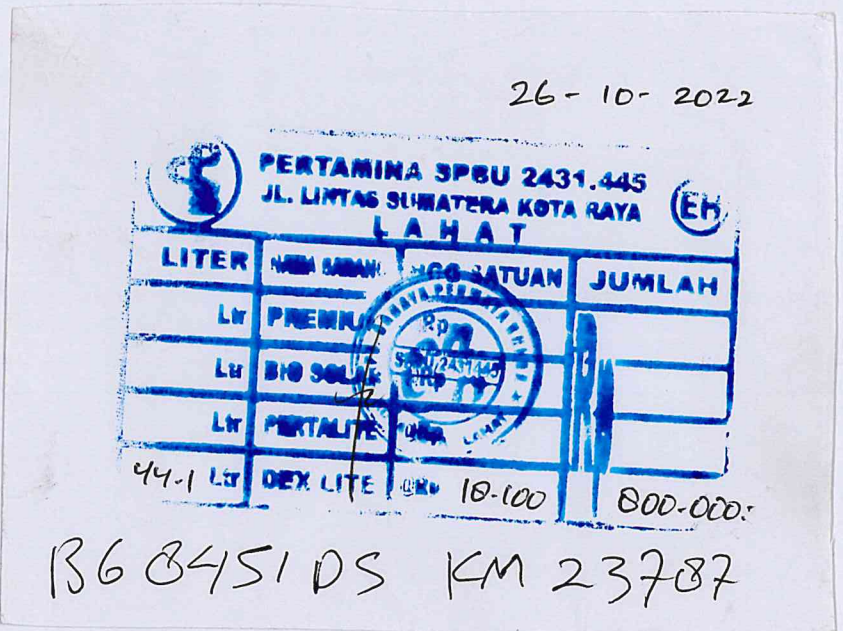 26-10-2022
PERTAMINA SPBU 2431.445
JL. LINTAS SUMATERA KOTA RAYA
EH
LAHAT
LITER NAMA BARANG SATUAN JUMLAH
Ltr PREMIUM Rp
Ltr BIO SOLAR SPBU 2431445
Ltr PERTALITE
44-1 Ltr DEX LITE 18-100 800-000:
BG 8451 DS KM 23787